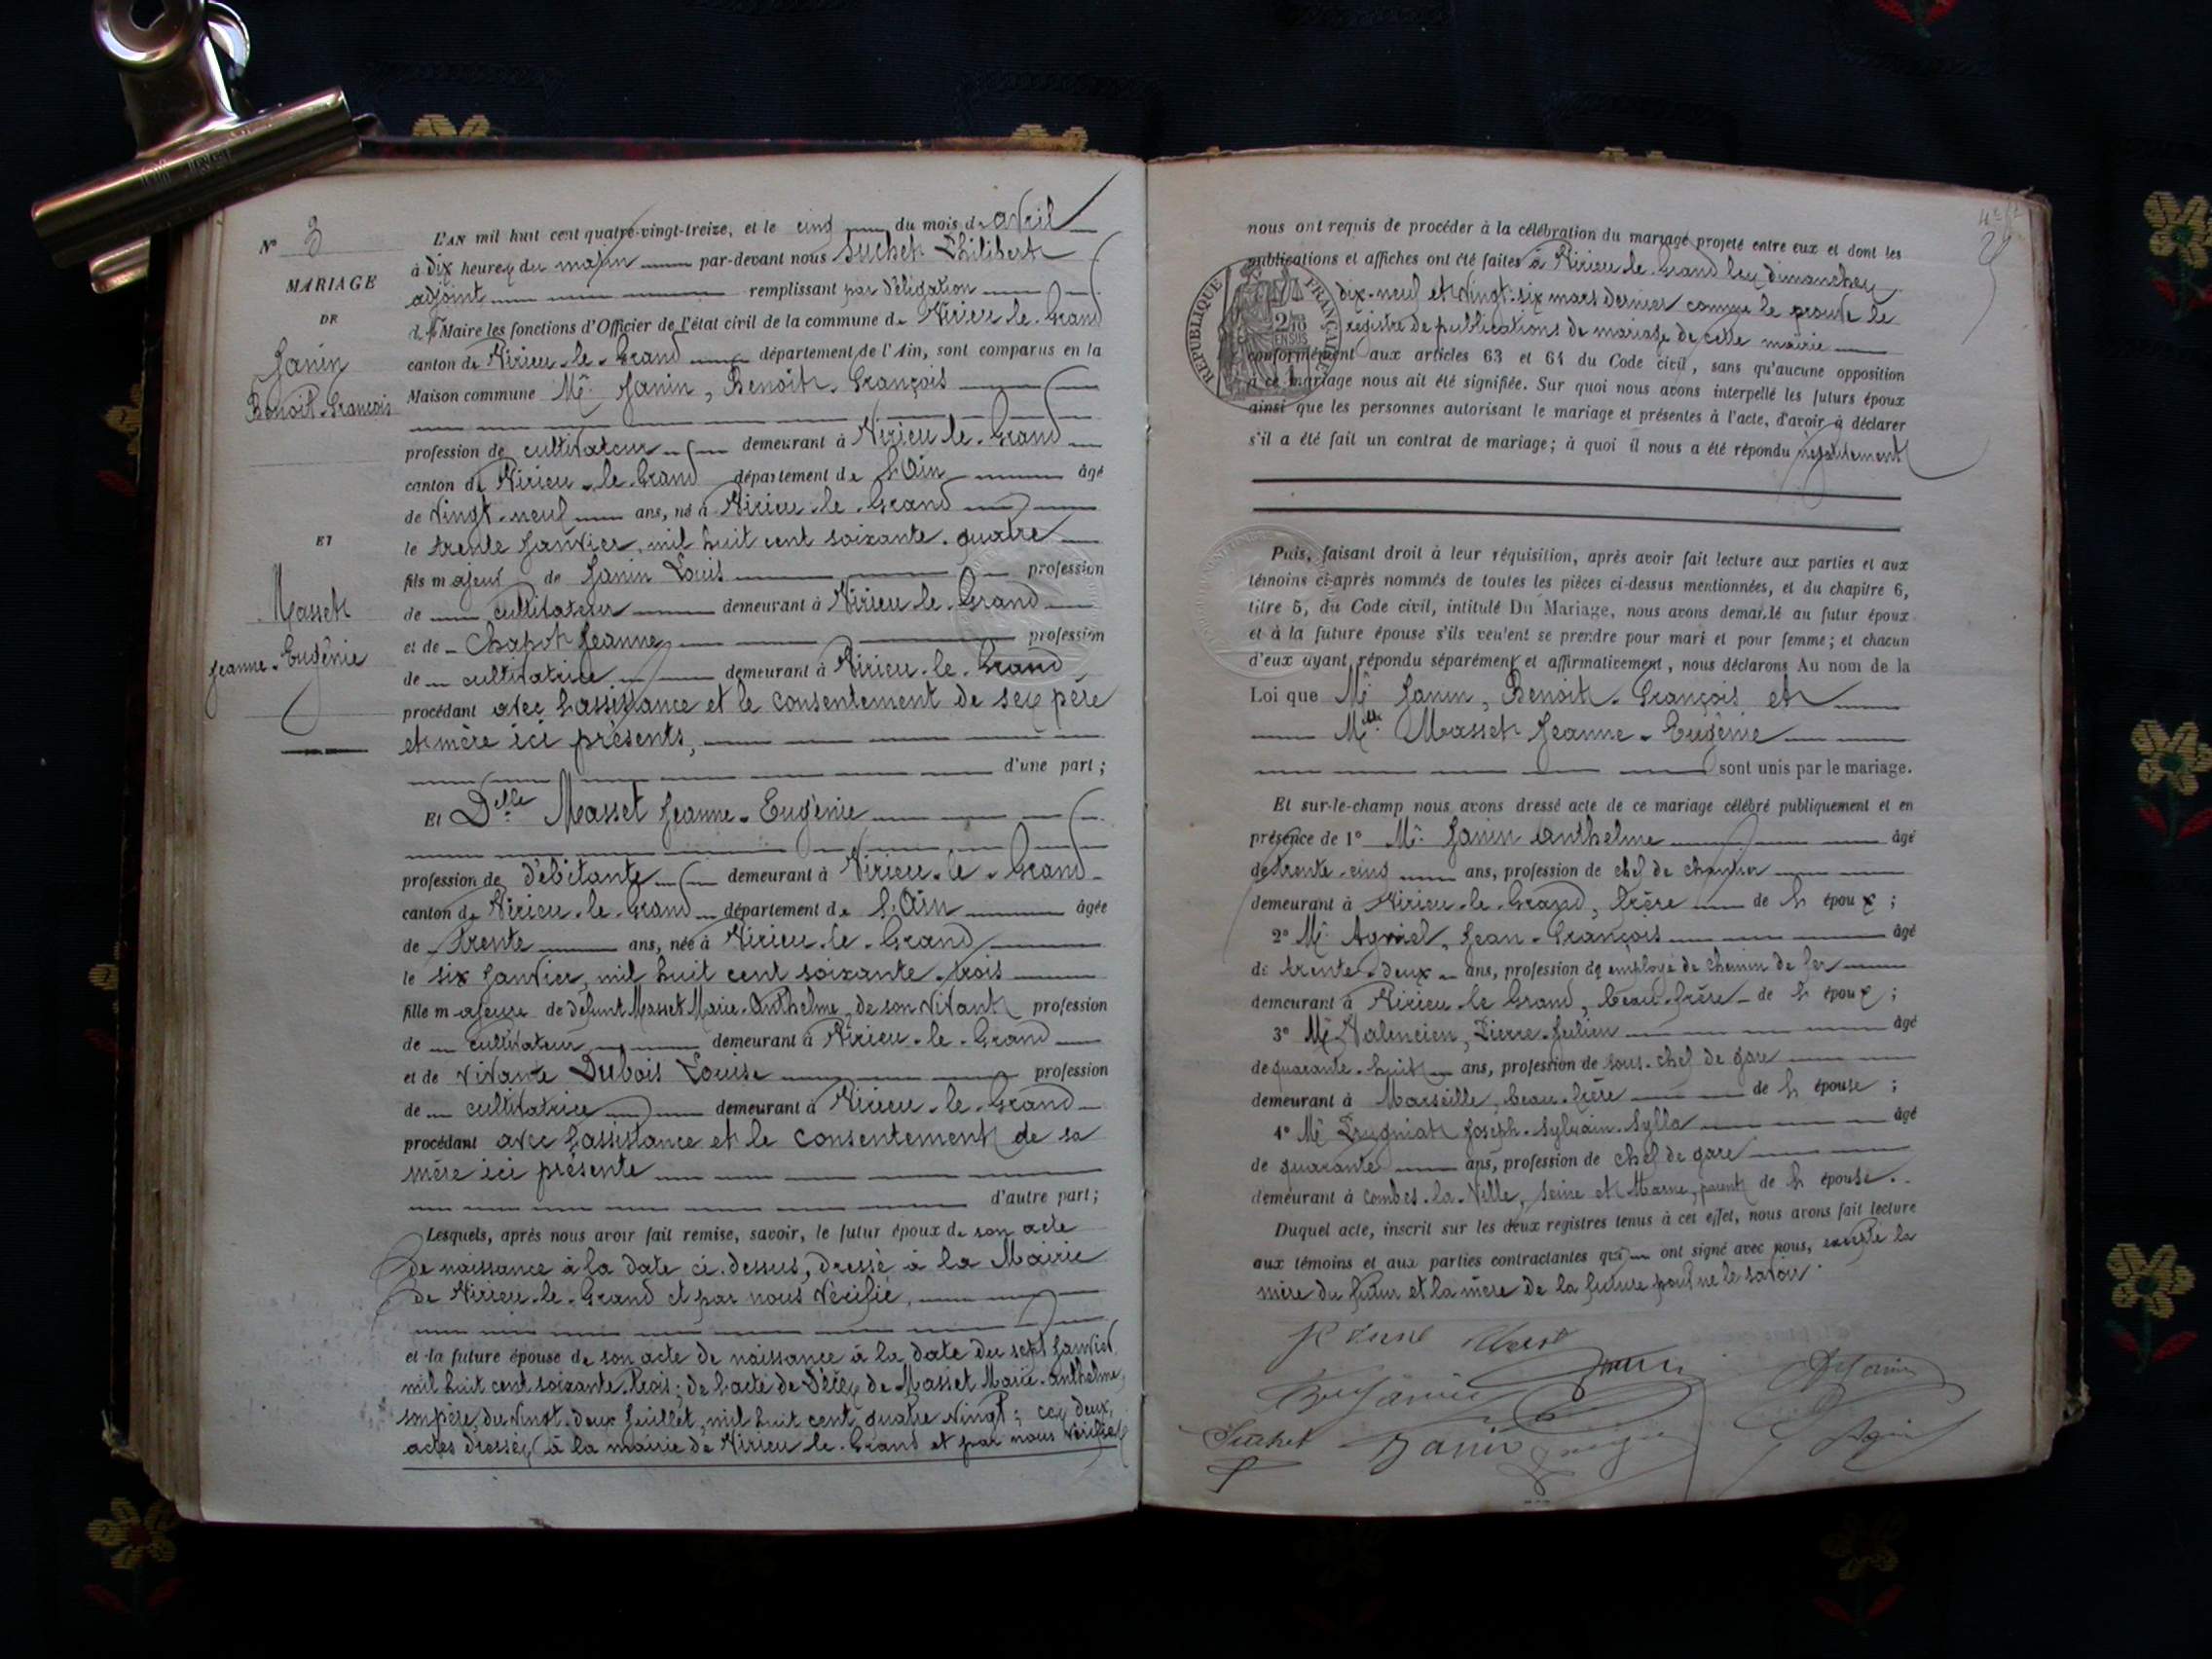 N° 3
MARIAGE
DE
Janin
Benoit-François
ET
Masset
Jeanne-Eugénie
L'AN mil huit cent quatre-vingt-treize, et le cinq du mois d'avril
à dix heures du matin par-devant nous Suchet Philibert
adjoint remplissant par délégation
du Maire les fonctions d'Officier de l'état civil de la commune de Virieu-le-Grand
canton de Virieu-le-Grand département de l'Ain, sont comparus en la
Maison commune Mr. Janin, Benoit-François
profession de cultivateur demeurant à Virieu-le-Grand
canton de Virieu-le-Grand département de l'Ain âgé
de vingt-neuf ans, né à Virieu-le-Grand
le trente Janvier, mil huit cent soixante-quatre
fils majeur de Janin Louis profession
de cultivateur demeurant à Virieu-le-Grand
et de Chapot Jeanne profession
de cultivatrice demeurant à Virieu-le-Grand
procédant avec l'assistance et le consentement de ses père
et mère ici présents,
d'une part;
Et Delle Masset Jeanne-Eugénie
profession de débitante demeurant à Virieu-le-Grand
canton de Virieu-le-Grand département de l'Ain âgée
de trente ans, née à Virieu-le-Grand
le six Janvier, mil huit cent soixante-trois
fille majeure de défunt Masset Marie-Anthelme, de son vivant profession
de cultivateur demeurant à Virieu-le-Grand
et de vivante Dubois Louise profession
de cultivatrice demeurant à Virieu-le-Grand
procédant avec l'assistance et le consentement de sa
mère ici présente
d'autre part;
Lesquels, après nous avoir fait remise, savoir, le futur époux de son acte
de naissance à la date ci-dessus, dressé à la Mairie
de Virieu-le-Grand et par nous vérifié,
et la future épouse de son acte de naissance à la date du sept Janvier
mil huit cent soixante-trois; de l'acte de décès de Masset Marie-Anthelme,
son père, du vingt-deux Juillet, mil huit cent quatre-vingt; ces deux
actes dressés à la mairie de Virieu-le-Grand et par nous vérifiés
nous ont requis de procéder à la célébration du mariage projeté entre eux et dont les
publications et affiches ont été faites à Virieu-le-Grand les dimanches
dix-neuf et vingt-six mars dernier comme le prouve le
registre de publications de mariage de cette mairie
conformément aux articles 63 et 64 du Code civil, sans qu'aucune opposition
à ce mariage nous ait été signifiée. Sur quoi nous avons interpellé les futurs époux
ainsi que les personnes autorisant le mariage et présentes à l'acte, d'avoir à déclarer
s'il a été fait un contrat de mariage; à quoi il nous a été répondu négativement
REPUBLIQUE FRANÇAISE
Puis, faisant droit à leur réquisition, après avoir fait lecture aux parties et aux
témoins ci-après nommés de toutes les pièces ci-dessus mentionnées, et du chapitre 6,
titre 5, du Code civil, intitulé Du Mariage, nous avons demandé au futur époux
et à la future épouse s'ils veulent se prendre pour mari et pour femme; et chacun
d'eux ayant répondu séparément et affirmativement, nous déclarons Au nom de la
Loi que Mr. Janin, Benoit-François et
Mlle. Masset Jeanne-Eugénie
sont unis par le mariage.
Et sur-le-champ nous avons dressé acte de ce mariage célébré publiquement et en
présence de 1° Mr. Janin Anthelme âgé
de trente-cinq ans, profession de chef de chantier
demeurant à Virieu-le-Grand, frère de l'époux;
2° Mr. Agniel, Jean-François âgé
de trente-deux ans, profession de employé de chemin de fer
demeurant à Virieu-le-Grand, beau-frère de l'époux;
3° Mr Valencien, Pierre-Julien âgé
de quarante-huit ans, profession de sous-chef de gare
demeurant à Marseille, beau-frère de l'épouse;
4° Mr Prugniat Joseph-Sylvain-Sylla âgé
de quarante ans, profession de chef de gare
demeurant à Combes-la-Ville, Seine et Marne, parent de l'épouse.
Duquel acte, inscrit sur les deux registres tenus à cet effet, nous avons fait lecture
aux témoins et aux parties contractantes qui ont signé avec nous, excepté la
mère du futur et la mère de la future pour ne le savoir.
Janin
Suchet
Janin